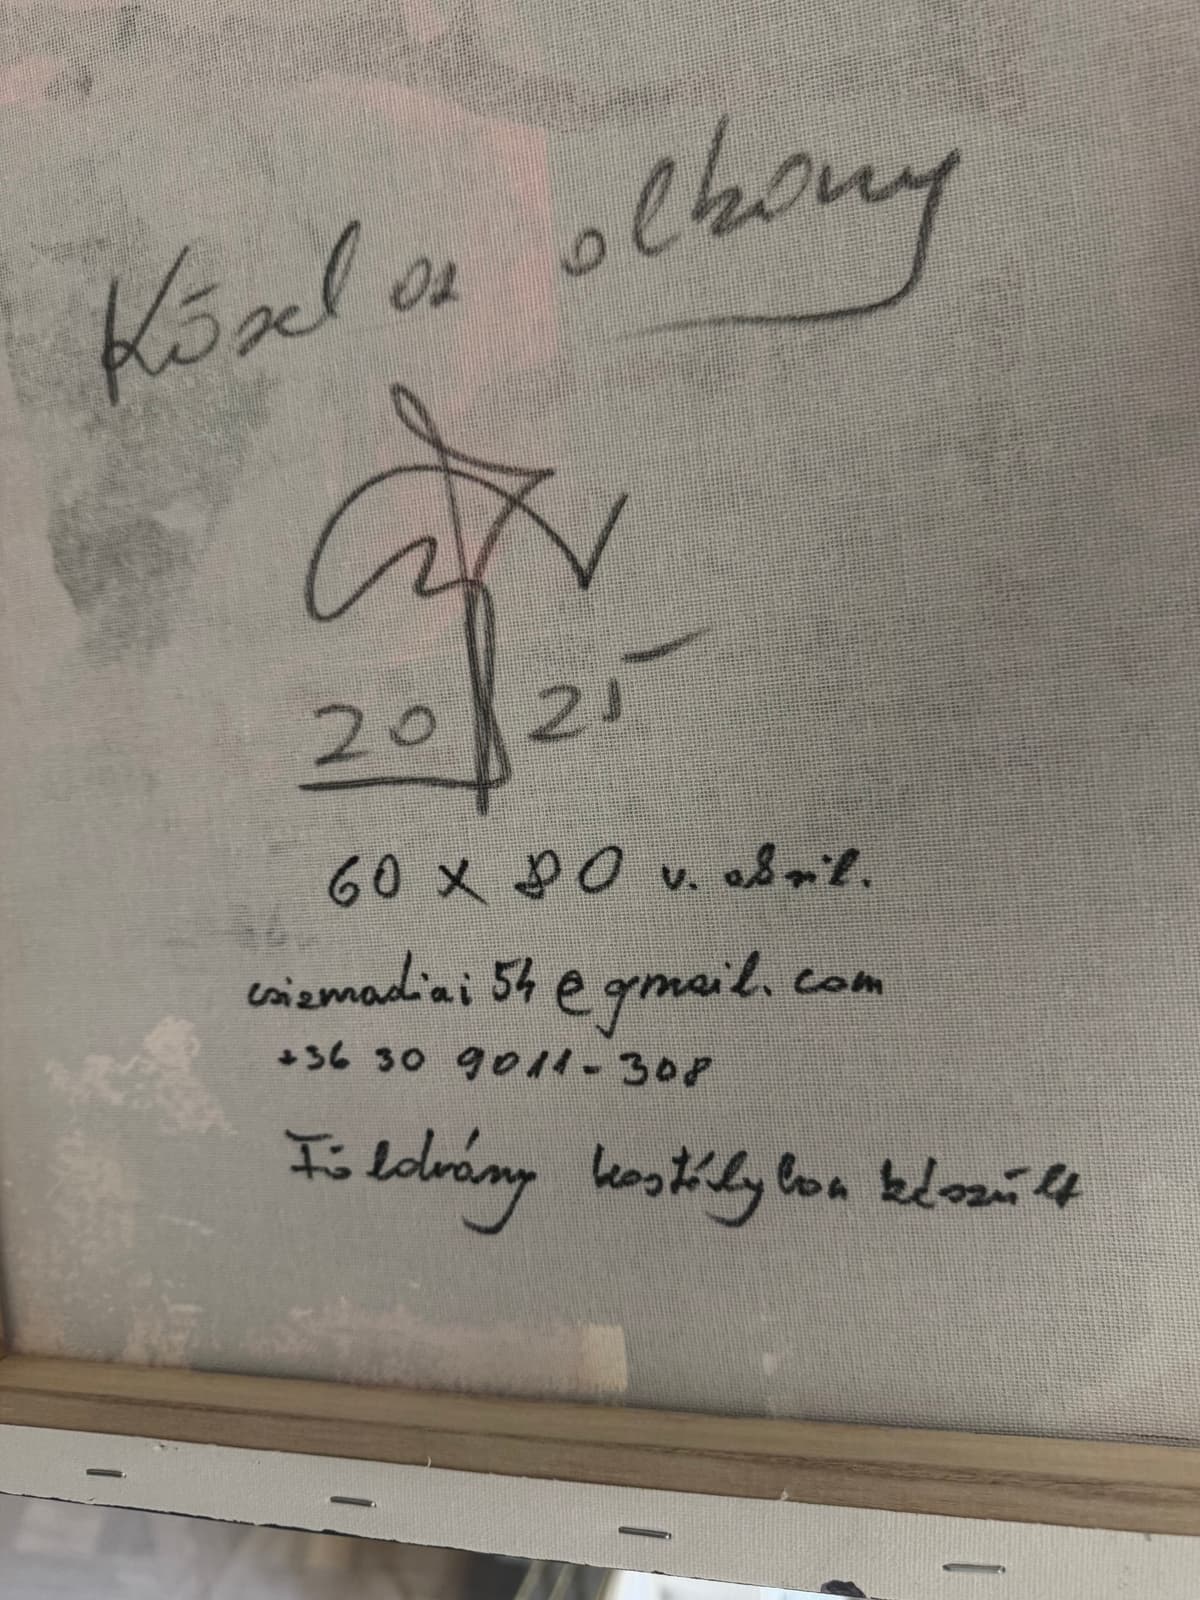 Közel az alkony
2025
60 x 80 v. akril.
csizmadiai54@gmail.com
+36 30 9011-308
Földvány kastélyban készült